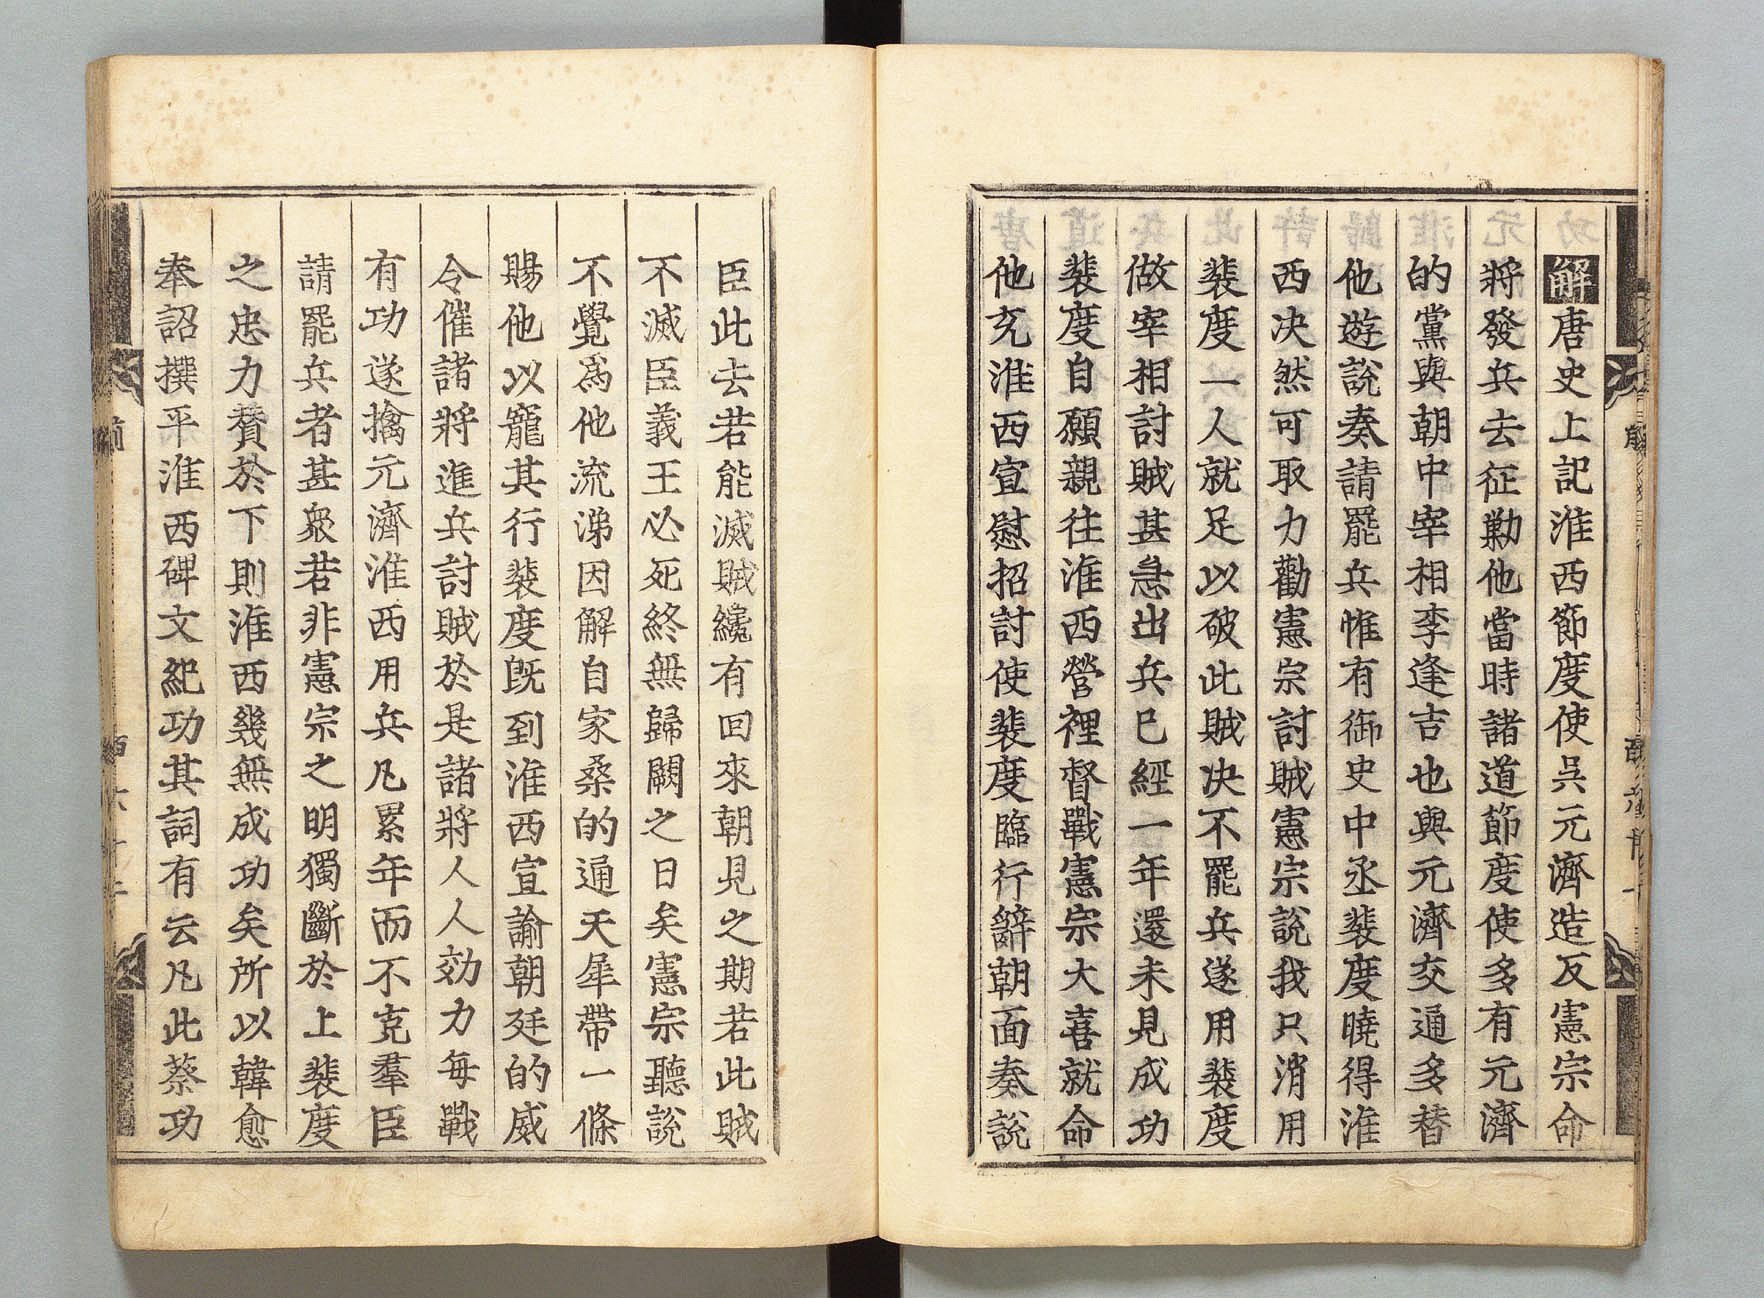 解唐史上記淮西節度使吳元濟造反憲宗命
將發兵去征勦他當時諸道節度使多有元濟
的黨與朝中宰相李逢吉也與元濟交通多替
他遊說奏請罷兵惟有御史中丞裴度曉得淮
西決然可取力勸憲宗討賊憲宗說我只消用
裴度一人就足以破此賊決不罷兵遂用裴度
做宰相討賊甚急出兵已經一年還未見成功
裴度自願親往淮西營裡督戰憲宗大喜就命
他充淮西宣慰招討使裴度臨行辭朝面奏說
臣此去若能滅賊纔有回來朝見之期若此賊
不滅臣義王必死終無歸闕之日矣憲宗聽說
不覺爲他流涕因解自家桑的通天犀帶一條
賜他以寵其行裴度旣到淮西宣諭朝廷的威
令催諸將進兵討賊於是諸將人人効力每戰
有功遂擒元濟淮西用兵凡累年而不克羣臣
請罷兵者甚衆若非憲宗之明獨斷於上裴度
之忠力贊於下則淮西幾無成功矣所以韓愈
奉詔撰平淮西碑文紀功其詞有云凡此蔡功